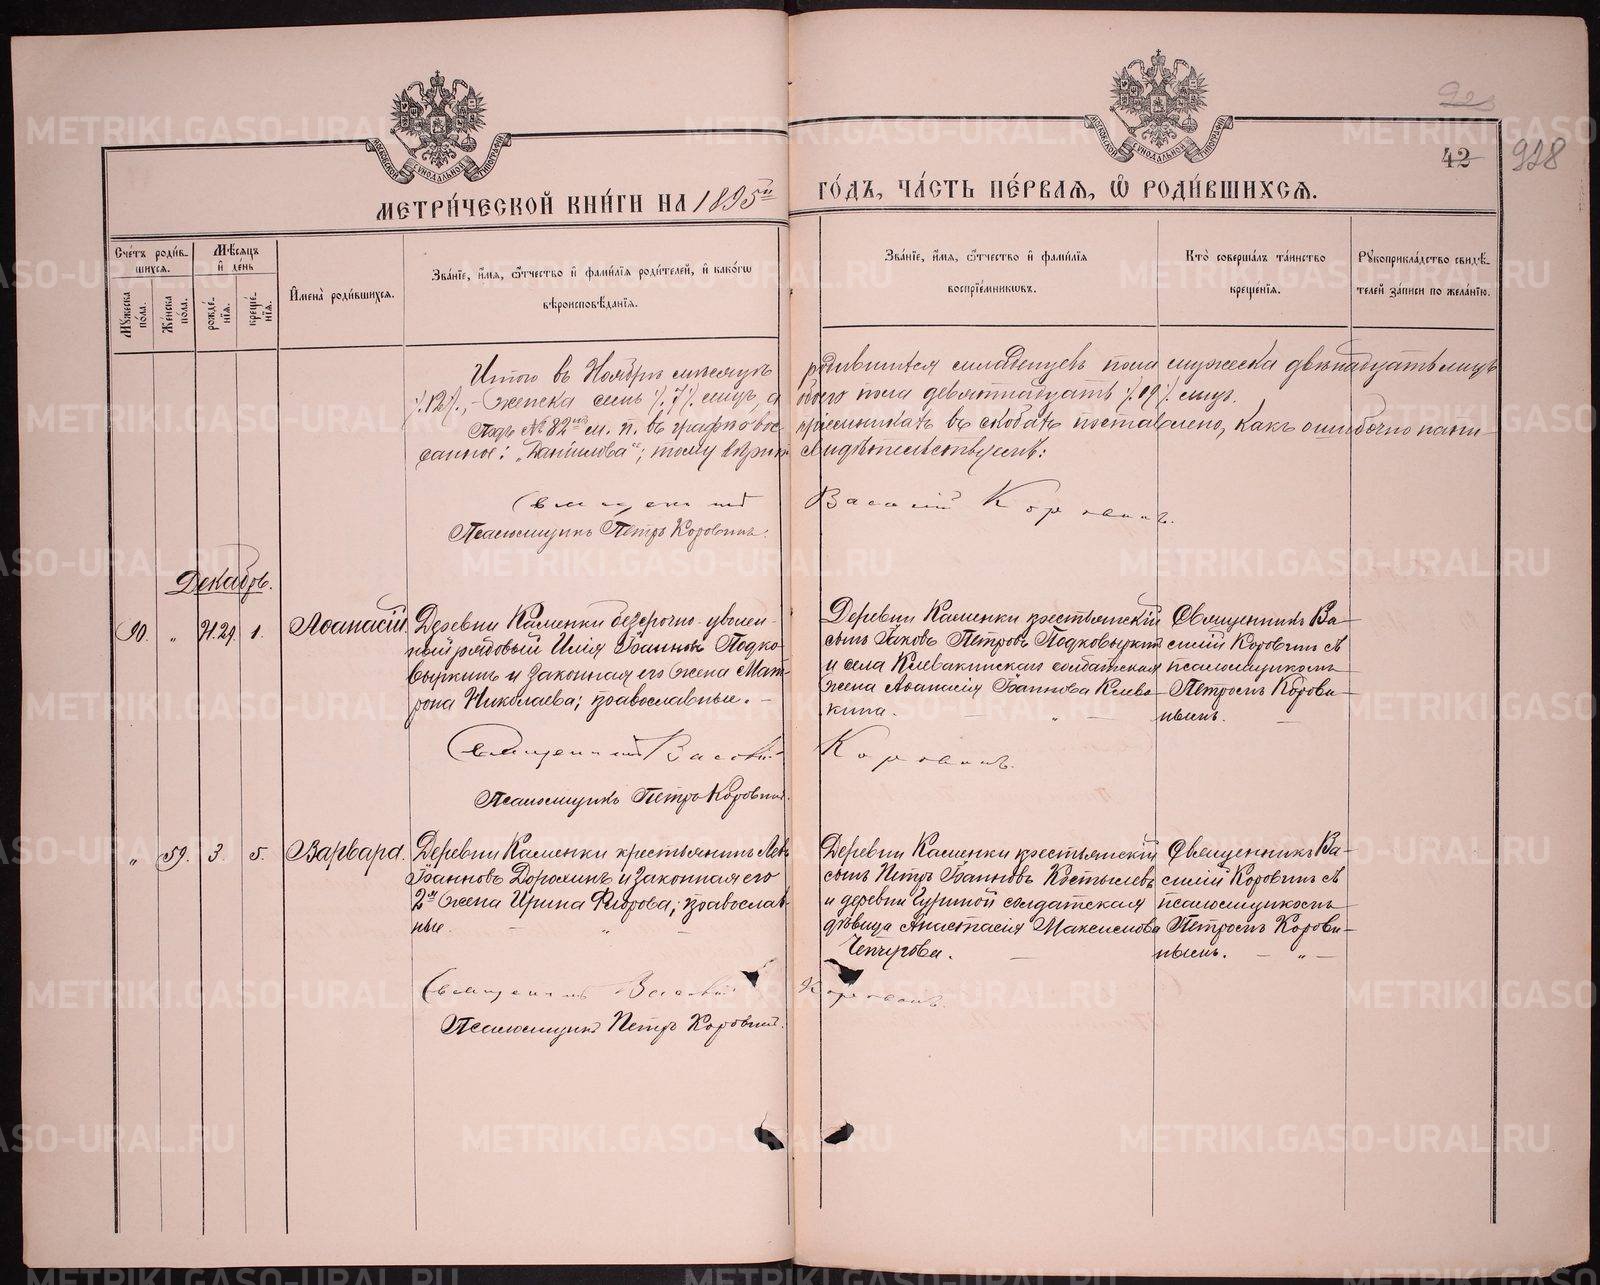 МЕТРИ́ЧЕСКОЙ КНИ́ГИ НА 1895й ГО́ДЪ, ЧА́СТЬ ПЕ́РВАЯ, Ѡ РОДИ́ВШИХСЯ.
42 928
Сче́тъ роди́вшихся.
Му́жеска по́ла.
Же́нска по́ла.
Мѣ́сяцъ и де́нь
рожде́нїя.
креще́нїя.
И҆мена̀ роди́вшихся.
Зва́нїе, и҆́мя, ѻ҆́тчество и҆ фами́лїя роди́телей, и҆ како́гѡ
вѣроисповѣ́данїя.
Зва́нїе, и҆́мя, ѻ҆́тчество и҆ фами́лїя
воспрїе́мникѡвъ.
Кто̀ соверша́лъ та́инство
креще́нїя.
Рꙋкоприкла́дство свидѣ́-
телей за́писи по жела́нїю.
Итого въ Ноябрѣ мѣсяцѣ родившихся младенцевъ пола мужеска двѣнадцать лицъ
/.12/., - женска семь /.7/. лицъ, а обоего пола девятнадцать /.19/. лицъ.
Подъ № 82мъ м. п. въ графѣ о вос- пріемникахъ въ скобахъ поставлено, какъ ошибочно напи-
санное: „Данилова“; тому вѣрить свидѣтельствуемъ:
Священникъ Василій Коровинъ.
Псаломщикъ Петръ Коровинъ.
Декабрь.
90. „ Н.29. 1. Аѳанасій.
Деревни Каменки безсрочно-уволен-
ный рядовой Илія Іоанновъ Подко-
выркинъ и законная его жена Мат-
рона Николаева; православные. -
Деревни Каменки крестьянскій
сынъ Іаковъ Петровъ Подковыркинъ
и села Клевакинскаго солдатская
жена Аѳанасія Іоаннова Клева-
кина. - „ -
Священникъ Ва-
силій Коровинъ съ
псаломщикомъ
Петромъ Корови-
нымъ. -
Священникъ Василій Коровинъ.
Псаломщикъ Петръ Коровинъ.
„ 59. 3. 5. Варвара.
Деревни Каменки крестьянинъ Левъ
Іоанновъ Дорохинъ и законная его
2я жена Ирина Флорова; православ-
ные. - „
Деревни Каменки крестьянскій
сынъ Петръ Іоанновъ Костылевъ
и деревни солдатская
дѣвица Анастасія Максимова
Чепчугова. -
Священникъ Ва-
силій Коровинъ съ
псаломщикомъ
Петромъ Корови-
нымъ. - „ -
Священникъ Василій Коровинъ.
Псаломщикъ Петръ Коровинъ.
METRIKI.GASO-URAL.RU